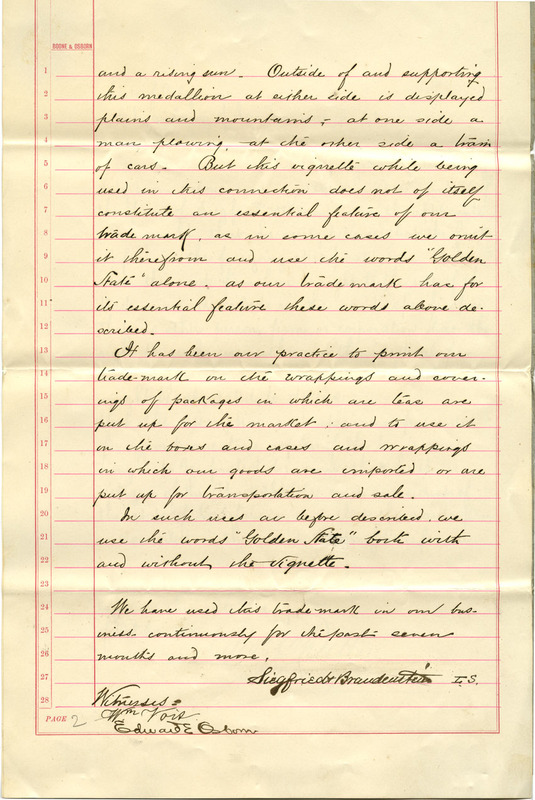 BOONE & OSBORN
1 and a rising sun. Outside of and supporting
2 this medallion at either side is displayed
3 plains and mountains; at one side a
4 man plowing, at the other side a train
5 of cars. But this vignette while being
6 used in this connection does not of itself
7 constitute an essential feature of our
8 trade mark, as in some cases we omit
9 it therefrom and use the words "Golden
10 State" alone. as our trade mark has for
11 its essential feature these words above de-
12 scribed.
13 It has been our practice to print our
14 trade-mark on the wrappings and cover-
15 ings of packages in which are teas are
16 put up for the market; and to use it
17 on the boxes and cases and wrappings
18 in which our goods are imported or are
19 put up for transportation and sale.
20 In such uses as before described. we
21 use the words "Golden State" both with
22 and without the vignette.
23
24 We have used this trade mark in our bus-
25 iness continuously for the past seven
26 months and more.
27 Siegfried & Brandenstein L.S.
28 Witnesses:
Wm
PAGE 2
Edward E. Osborn